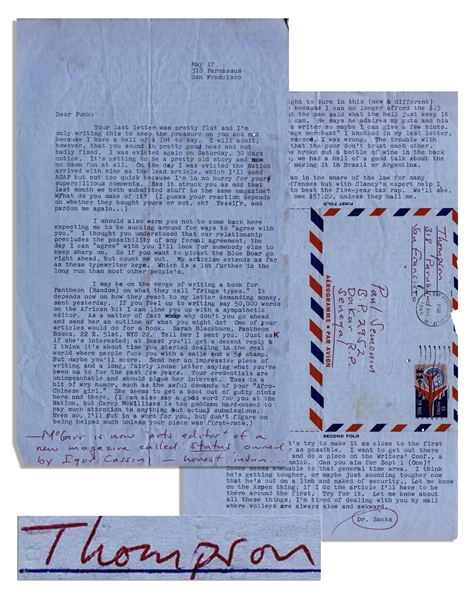 May 17
318 Parnassus
San Francisco
Dear Punk:
Your last letter was pretty flat and I'm
only writing this to keep the pressure on you and not
because I have a hell of a lot to say. I will admit,
however, that you sound in pretty good head and not
badly fixed. I was evicted again on Saturday. 30 days
notice. It's getting to be a pretty old story and
no damn fun at all. On the day I was evicted the Nation
arrived with mine as the lead article, which I'll send
ASAP but not too quick because I'm in no hurry for your
supercilious comments. Has it struck you as odd that
last month we both submitted stuff to the same magazine?
What do you make of it? (I guess your reaction depends
on whether they bought yours or not, eh? Yessifr, and
pardon me again...)
I should also warn you not to come back here
expecting me to be sucking around for ways to "agree with
you." I thought you understood that our relationship
precludes the possibility of any formal agreement; the
day I can "agree" with you I'll look for somebody else
to keep sharp on. So if you want to picket the Blue Boar go
right ahead, but count me out. My activism extends as far
as these typewriter keys, which is a lot further in the
long run than most other people's.
I may be on the verge of writing a book for
Pantheon (Random) on what they call "fringe types". It
depends now on how they react to my letter demanding money,
sent yesterday. If you feel up to writing say 50,000 words
on the African bit I can line you up with a sympathetic
editor. As a matter of fact why don't you go ahead
and send her an outline of what you might do? One of your
articles would do for a hook. Sarah Blackburn, Pantheon
Books, 22 E. 51st, NYC 22. Tell her I sent you. Just ask
if she's interested; at least you'll get a decent reply.
I think it's about time you started dealing in the real
world where people fuck you with a smile and a 5¢ stamp.
But maybe you'll score. Send her an impressive piece of
writing and a long, fairly loose letter saying what you've
been up to for the past few years. Your credentials are
unimpeachable and should pique her interest. Toss in a
bit of wry humor, such as the awful demands of your "Afro-
Chinese girl." She seems to get a boot out of gutty hints
here and there. (I can also say a good word for you at the
Nation, but Carey McWilliams is too goddamn hard-nosed to
pay much attention to anything but actual submissions.
Even so, I'll put in a word for you, but don't figure on
being helped much unless your piece was first-rate.)
—McGarr is now "arts editor" of a
new magazine called Status, owned
by Igor Cassini — honest indun.
Thompson
ght to turn in this (new & different)
because I can no longer afford the $15
t the man said what the hell just keep it
can. He says he admires my guts and his
a writer so maybe I can give a few hints.
age merchant" I knocked in my last letter,
record, I was wrong. The trouble with
that the poor don't trust each other.
he broke out a bottle of wine in the back
, we had a hell of a good talk about the
making it in Brazil or Argentina.
am in the snare of the law for many
offenses but with Clancy's expert help I
to beat the five-year tail rap. We'll see.
owe $57.20, unless they nail me.
FIRST FOLD
Thompson
318 Parnassus
San Francisco
AEROGRAMME • PAR AVION
Paul Semonin
B.P. 2892
Dakar, R.P.
Senegal
SECOND FOLD
t's try to make it as close to the first
r as possible. I want to get out there
and do a piece on the Writers' Conf., a
mick. Can you aim for Sept 1 (One)?
Cooke seems amenable to that general area. I think
he's getting tougher, or maybe just sounding tougher now
that he's out on a limb and naked of security. Let me know
on the Aspen thing; if I do the article I'll have to be
there around the first. Try for it. Let me know about
all these things, I'm tired of dealing with you by mail
where volleys are always slow and awkward.
Dr. Zacks